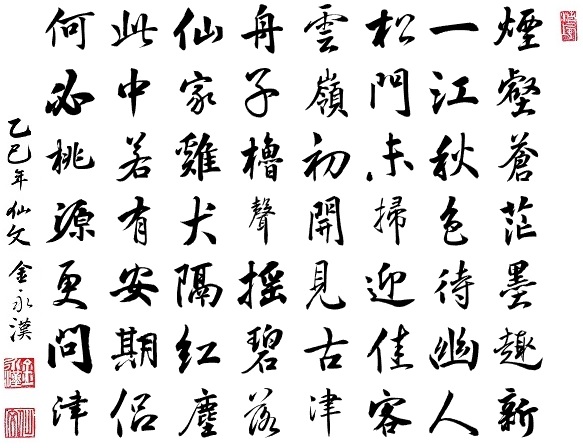 煙壑蒼茫墨趣新
一江秋色待幽人
松門未掃迎佳客
雲嶺初開見古津
舟子櫓聲搖碧落
仙家雞犬隔紅塵
此中若有安期侶
何必桃源更問津
乙巳年仙文金永漢